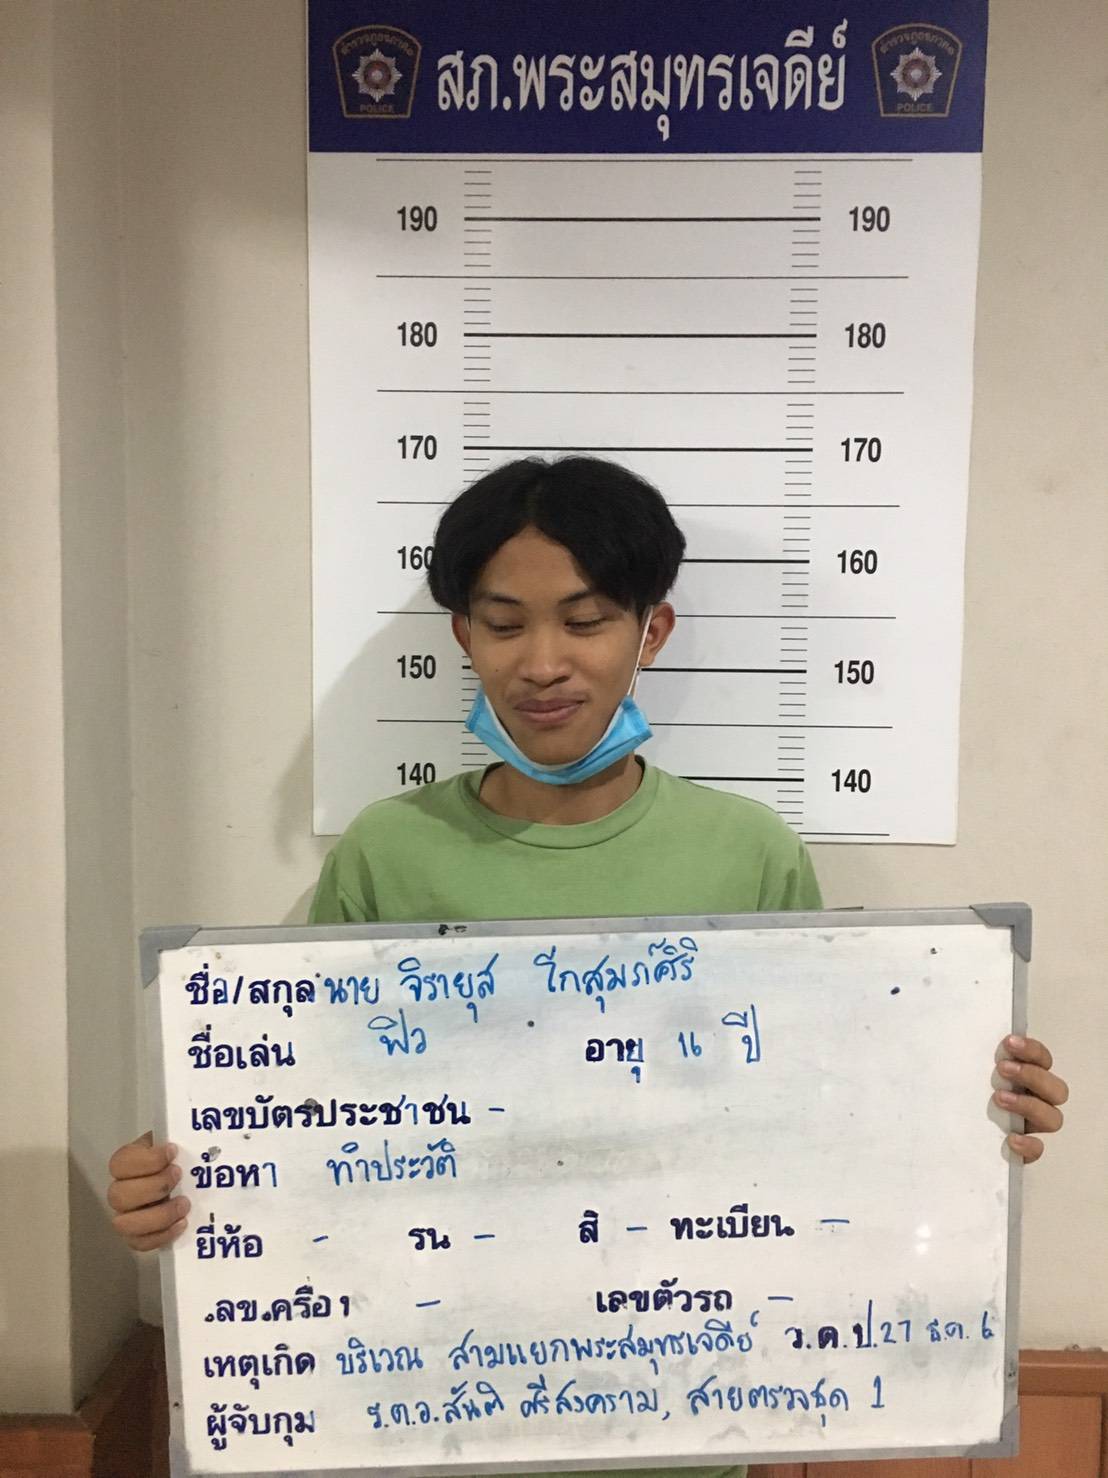 สภ.พระสมุทรเจดีย์
POLICE POLICE
190 190
180 180
170 170
160 160
150 150
140 140
ชื่อ/สกุล นาย จิรายุส
ชื่อเล่น ฟิว อายุ 16 ปี
เลขบัตรประชาชน -
ข้อหา ทำประวัติ
ยี่ห้อ - รุน - สี - ทะเบียน -
ลข.ครื่อง - เลขตัวรถ -
เหตุเกิด บริเวณ สามแยกพระสมุทรเจดีย์ ว.ด.ป. 27 ธ.ค. 6
ผู้จับกุม ร.ต.อ.สันติ ศรีสงคราม, สายตรวจชุด 1